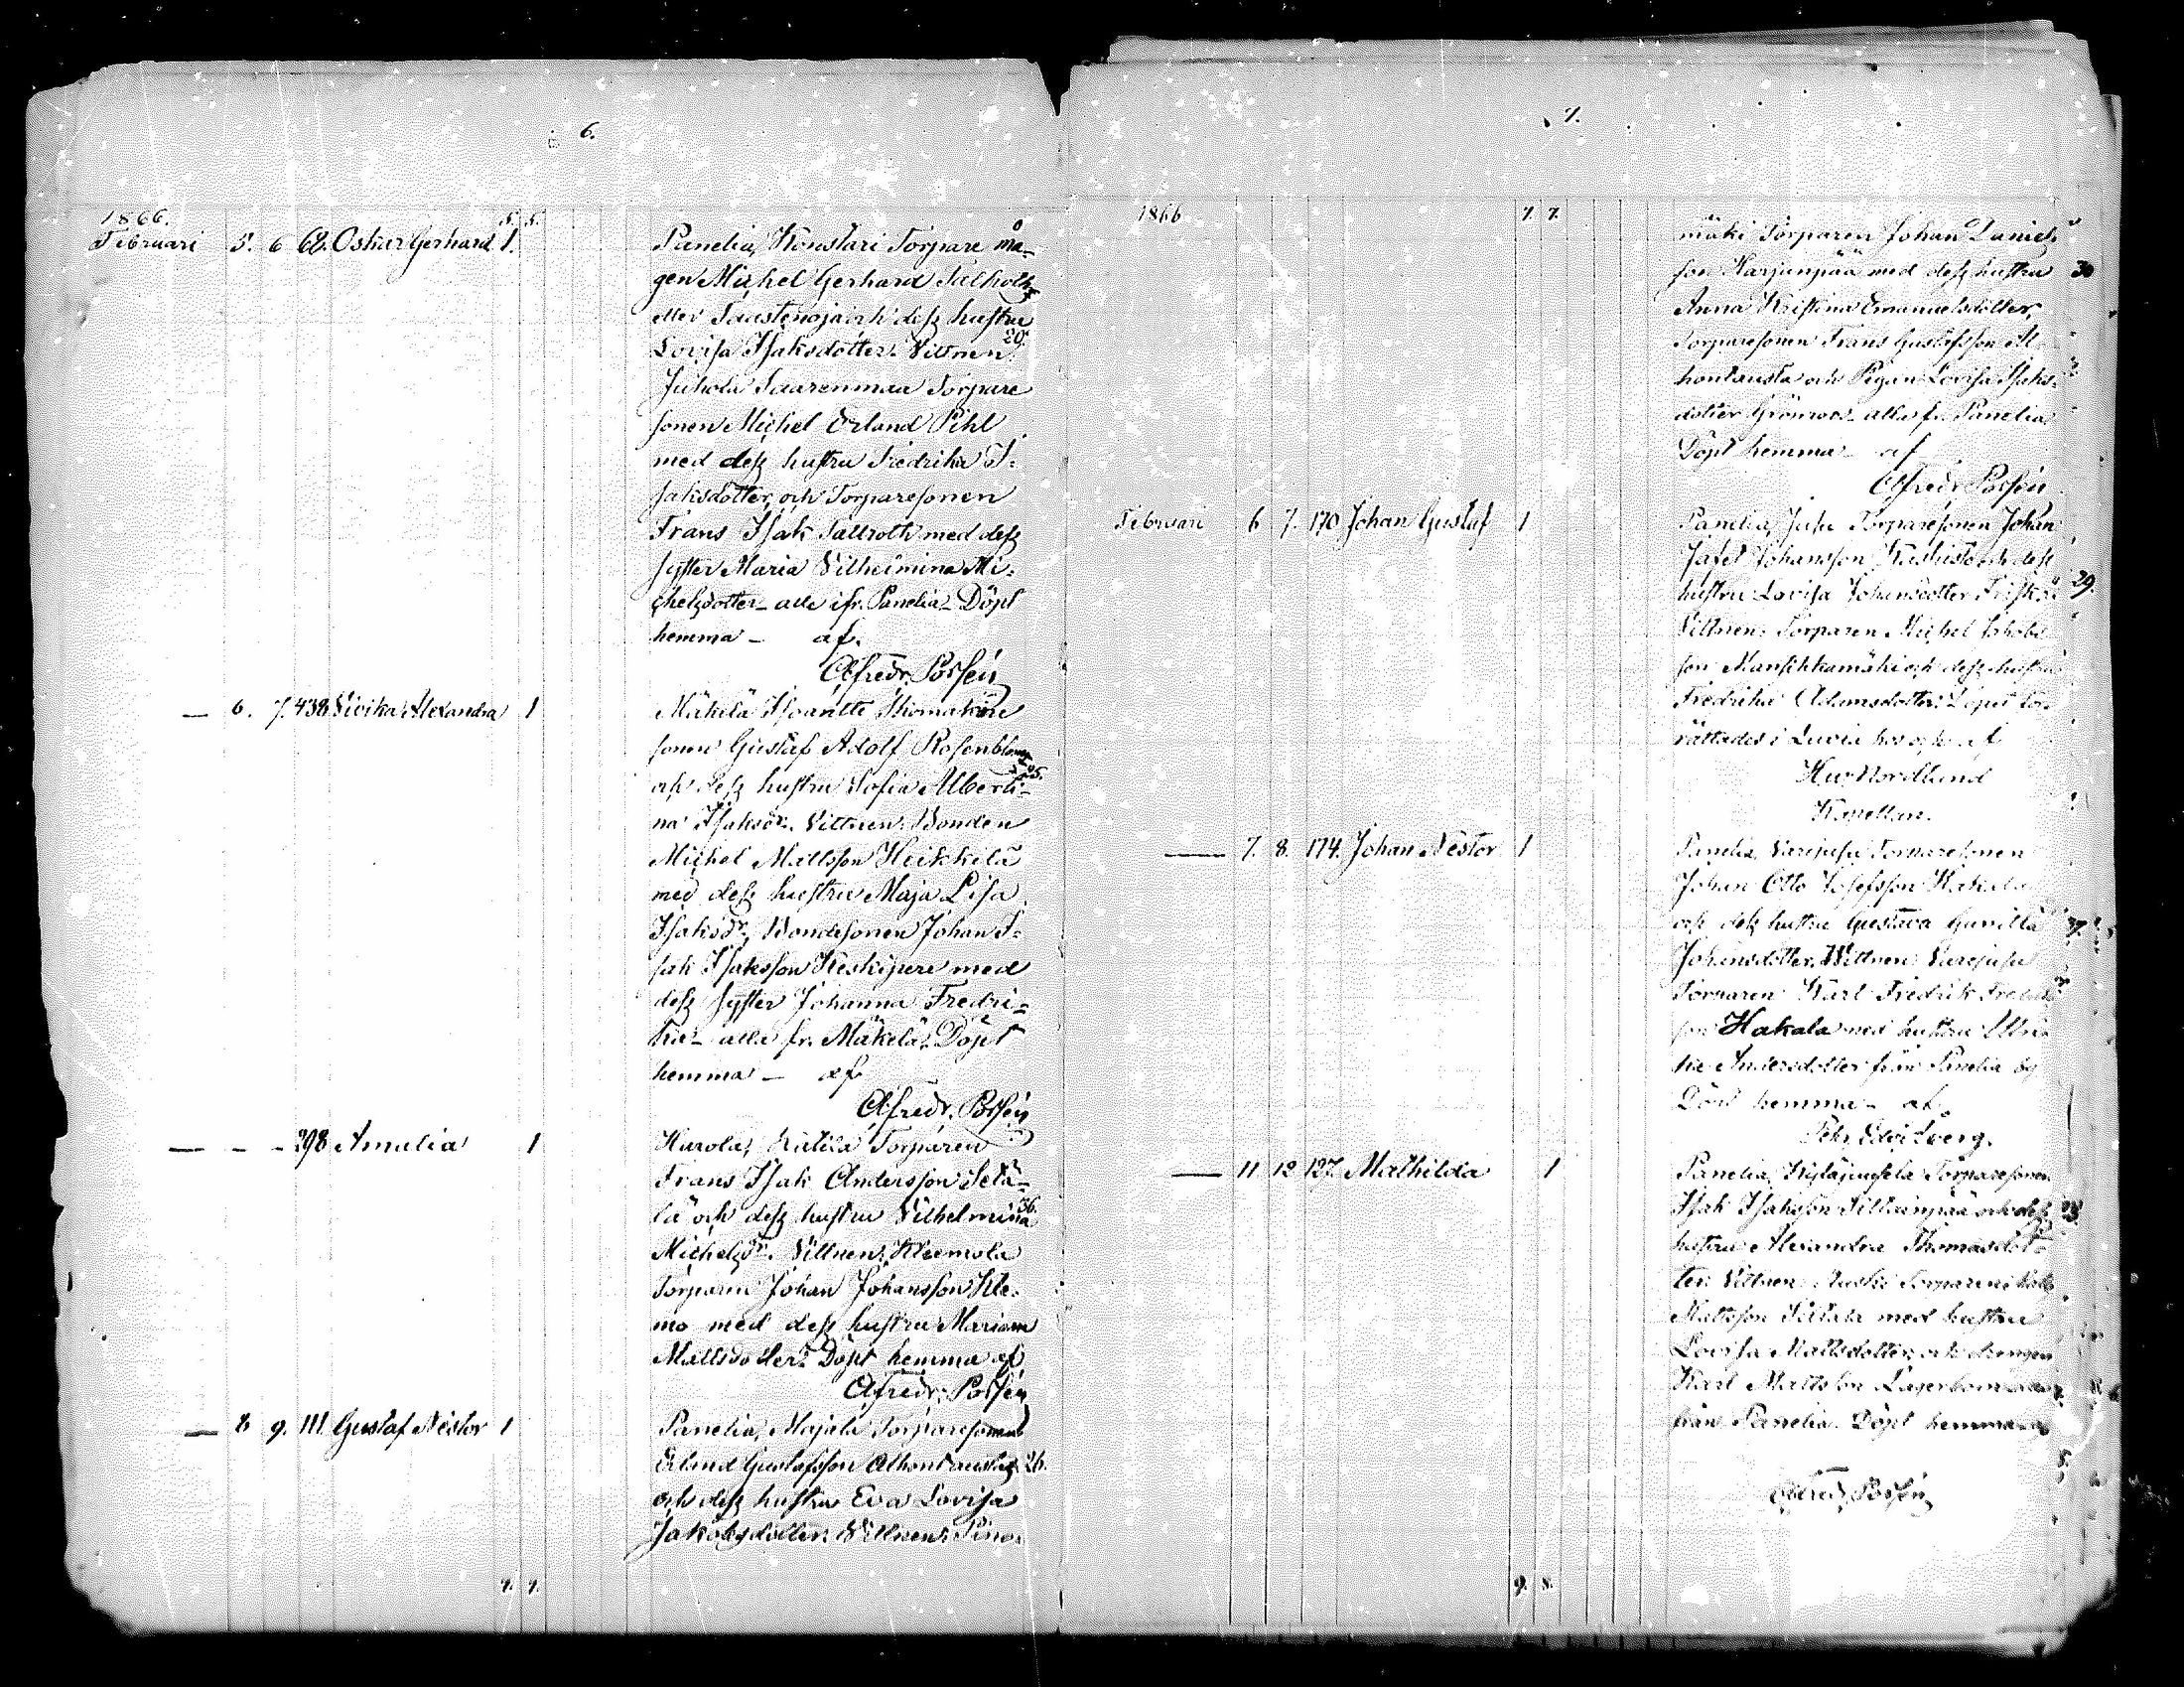 6.
1866.
5. 5.
Februari 5. 6 68. Oskar Gerhard 1.
Panelia, Konstari Torpare må-
gen Michel Gerhard
eller och dess hustru
Lovisa Isaksdotter. Vittnen: 29.
Juhola Saarenmaa Torpare
sonen Michel Erland Pihl
med dess hustru Fredrika I-
saksdotter, och Torparesonen
Frans Isak Sallroth med dess
syster Maria Vilhelmina Mi-
chelsdotter - alle ifr. Panelia - Döpt
hemma - af.
Alfredr. Posséin
— 6. 7. 438. Vivika Alexandra 1
Mäkelä
sonen Gustaf Adolf Rosenblom
och dess hustru Sofia Alberti- 25.
na Isaksdr. Vittnen: Bonden
Michel Mattsson Heikkilä
med dess hustru Maja Lisa
Isaksdr, Bondesonen Johan I-
sak Isaksson Keskipere med
dess syster Johanna Fredri-
ka - alla fr. Mäkelä. Döpt
hemma - af
Alfredr. Posséin
— - - 298 Amalia 1
Harola, Torparen
Frans Isak Andersson Setä-
lä och dess hustru Vilhelmina 36.
Michelsdr. Vittnen: Kleemola
Torparen Johan Johansson Kle-
mo med dess hustru Mariam
Mattsdotter. Döpt hemma af
Alfredr. Posséin
— 8 9. 111. Gustaf Nestor 1
Panelia, Majala Torparesonen
Erland Gustafsson Alhontausta 26.
och dess hustru Eva Lovisa
Jakobsdotter. Vittnen: Pino-
7. 7.
7.
1866
7. 7.
mäki Torparen Johan Daniels-
son Harjunpää med dess hustru 30
Anna Kristina Emanuelsdotter,
Torparesonen Frans Gustafsson Al-
hontausta och Pigan Lovisa Isaks-
dotter Grönroos - alla fr. Panelia.
Döpt hemma - af
Alfredr. Posséin
Februari 6 7. 170 Johan Gustaf 1
Panelia, Jusu Torparesonen Johan
Jafet Johansson och dess
hustru Lovisa Johansdotter 29.
Vittnen: Torparen Michel Jakobs-
son Mansikkamäki och dess hustru
Fredrika Adamsdotter. Döpet för-
rättades i Luvia hos och af
Nordlund
Kapellan.
— 7. 8. 174. Johan Nestor 1
Panelia, Torparesonen
Johan Otto Josefsson Hakala
och dess hustru Gustava Gunilla 37.
Johansdotter. Vittnen:
Torparen Karl Fredrik
son Hakala med hustru Ulri-
ka Andersdotter från Panelia by
Döpt hemma - af
Pehr
— 11 12 127. Mathilda 1
Panelia, Torparesonen
Isak Isaksson och dess 23.
hustru Alexandra Thomasdot-
ter. Vittnen: Torparen
Mattsson med hustru
Lovisa Mattsdotter, och drengen
Karl Mattsson
från Panelia. Döpt hemma af
Alfredr. Posséin
9. 8.